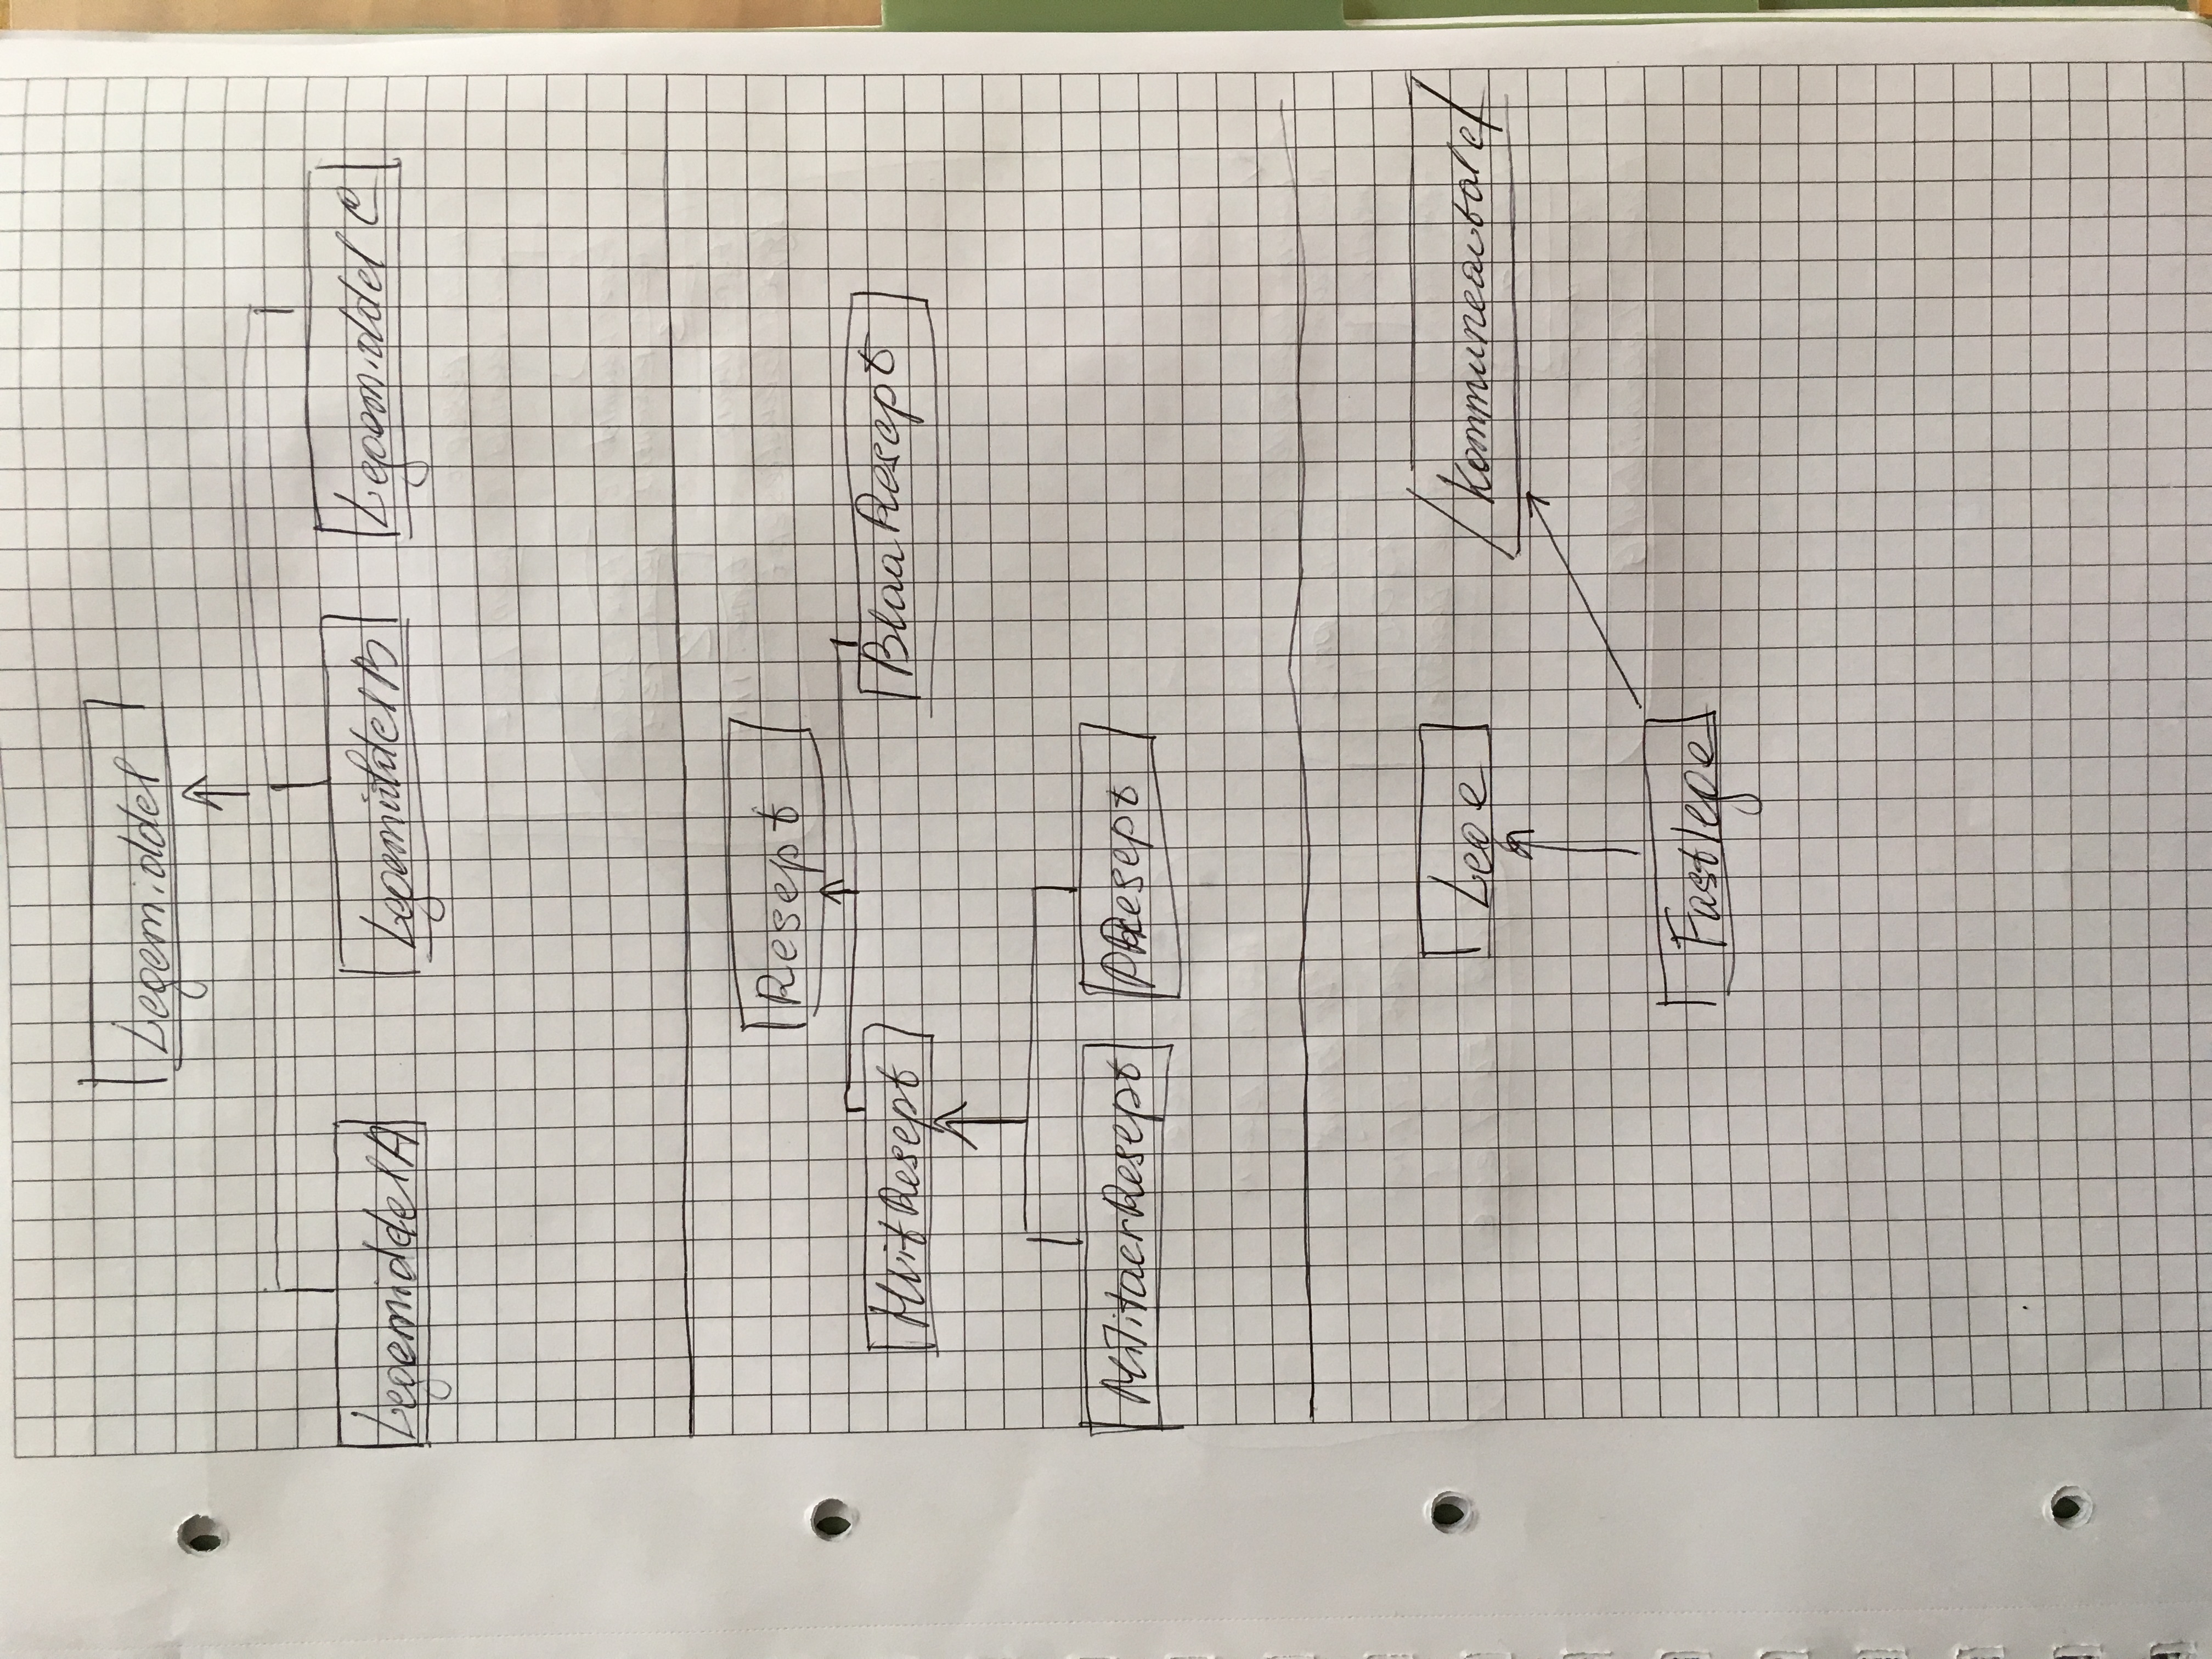 Legemiddel
LegemiddelA
LegemiddelB
LegemiddelC
Resept
HvitResept
BlaaResept
MilitaerResept
PResept
Lege
Kommuneavtale
Fastlege